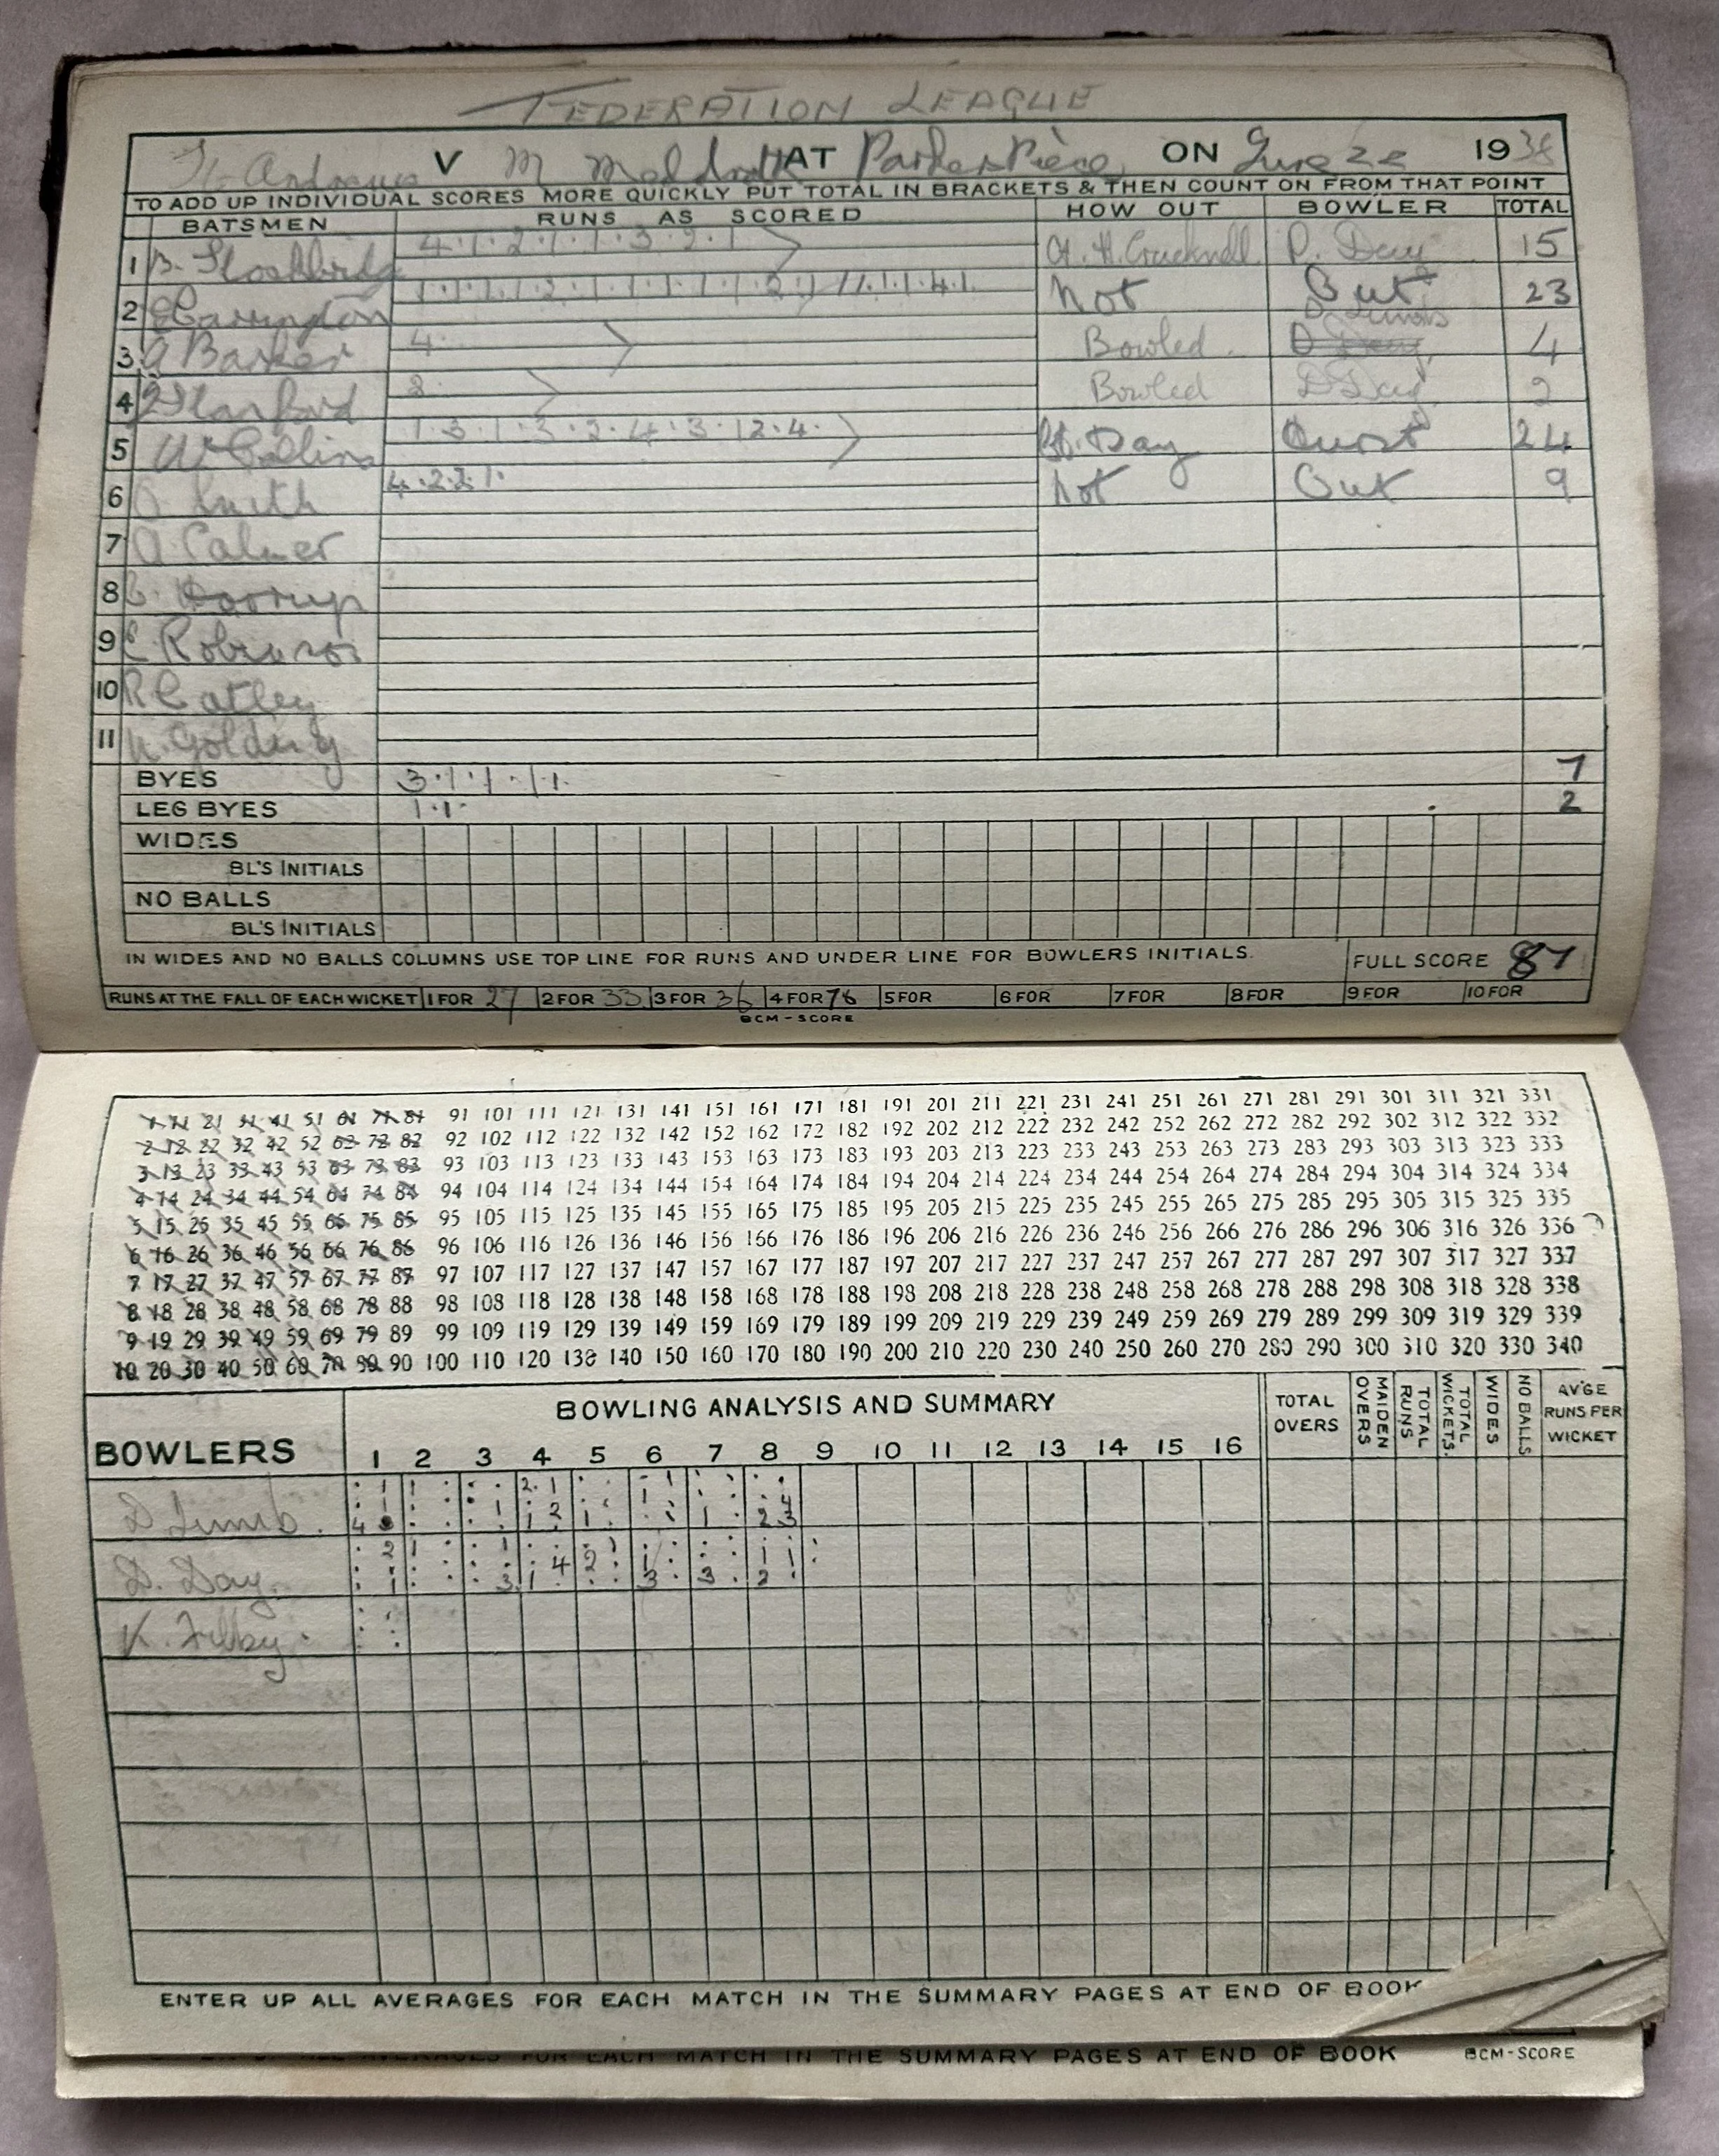 FEDERATION LEAGUE
St. Andrews V M Meldreth AT Parkers Piece ON June 22 1938
TO ADD UP INDIVIDUAL SCORES MORE QUICKLY PUT TOTAL IN BRACKETS & THEN COUNT ON FROM THAT POINT
BATSMEN RUNS AS SCORED HOW OUT BOWLER TOTAL
1 B. Stockbridge 4·1·2·1·1·3·2·1 Ct. H. Crucknell D. Day 15
2 Carrington Not Out 23
3 A Barker 4· Bowled D Limb 4
4 Stanford 2· Bowled D Day 2
5 W Collins 1·3·1·3·2·4·3·1 2·4· Ct. Day 24
6 Smith 4·2·2·1· Not Out 9
7 A. Palmer
8
9 Robinson
10 R Catley
11 Golding
BYES 3·1·1·1·1· 7
LEG BYES 1·1· 2
WIDES
BL'S INITIALS
NO BALLS
BL'S INITIALS
IN WIDES AND NO BALLS COLUMNS USE TOP LINE FOR RUNS AND UNDER LINE FOR BOWLERS INITIALS. FULL SCORE 87
RUNS AT THE FALL OF EACH WICKET 1 FOR 27 2 FOR 33 3 FOR 36 4 FOR 78 5 FOR 6 FOR 7 FOR 8 FOR 9 FOR 10 FOR
BCM-SCORE
1 11 21 31 41 51 61 71 81 91 101 111 121 131 141 151 161 171 181 191 201 211 221 231 241 251 261 271 281 291 301 311 321 331
2 12 22 32 42 52 62 72 82 92 102 112 122 132 142 152 162 172 182 192 202 212 222 232 242 252 262 272 282 292 302 312 322 332
3 13 23 33 43 53 63 73 83 93 103 113 123 133 143 153 163 173 183 193 203 213 223 233 243 253 263 273 283 293 303 313 323 333
4 14 24 34 44 54 64 74 84 94 104 114 124 134 144 154 164 174 184 194 204 214 224 234 244 254 264 274 284 294 304 314 324 334
5 15 25 35 45 55 65 75 85 95 105 115 125 135 145 155 165 175 185 195 205 215 225 235 245 255 265 275 285 295 305 315 325 335
6 16 26 36 46 56 66 76 86 96 106 116 126 136 146 156 166 176 186 196 206 216 226 236 246 256 266 276 286 296 306 316 326 336
7 17 27 37 47 57 67 77 87 97 107 117 127 137 147 157 167 177 187 197 207 217 227 237 247 257 267 277 287 297 307 317 327 337
8 18 28 38 48 58 68 78 88 98 108 118 128 138 148 158 168 178 188 198 208 218 228 238 248 258 268 278 288 298 308 318 328 338
9 19 29 39 49 59 69 79 89 99 109 119 129 139 149 159 169 179 189 199 209 219 229 239 249 259 269 279 289 299 309 319 329 339
10 20 30 40 50 60 70 80 90 100 110 120 130 140 150 160 170 180 190 200 210 220 230 240 250 260 270 280 290 300 310 320 330 340
BOWLERS BOWLING ANALYSIS AND SUMMARY TOTAL OVERS MAIDEN OVERS TOTAL RUNS TOTAL WICKETS. WIDES NO BALLS AV'GE RUNS PER WICKET
1 2 3 4 5 6 7 8 9 10 11 12 13 14 15 16
D Limb.
D. Day.
K. Filby.
ENTER UP ALL AVERAGES FOR EACH MATCH IN THE SUMMARY PAGES AT END OF BOOK
FOR EACH MATCH IN THE SUMMARY PAGES AT END OF BOOK BCM-SCORE